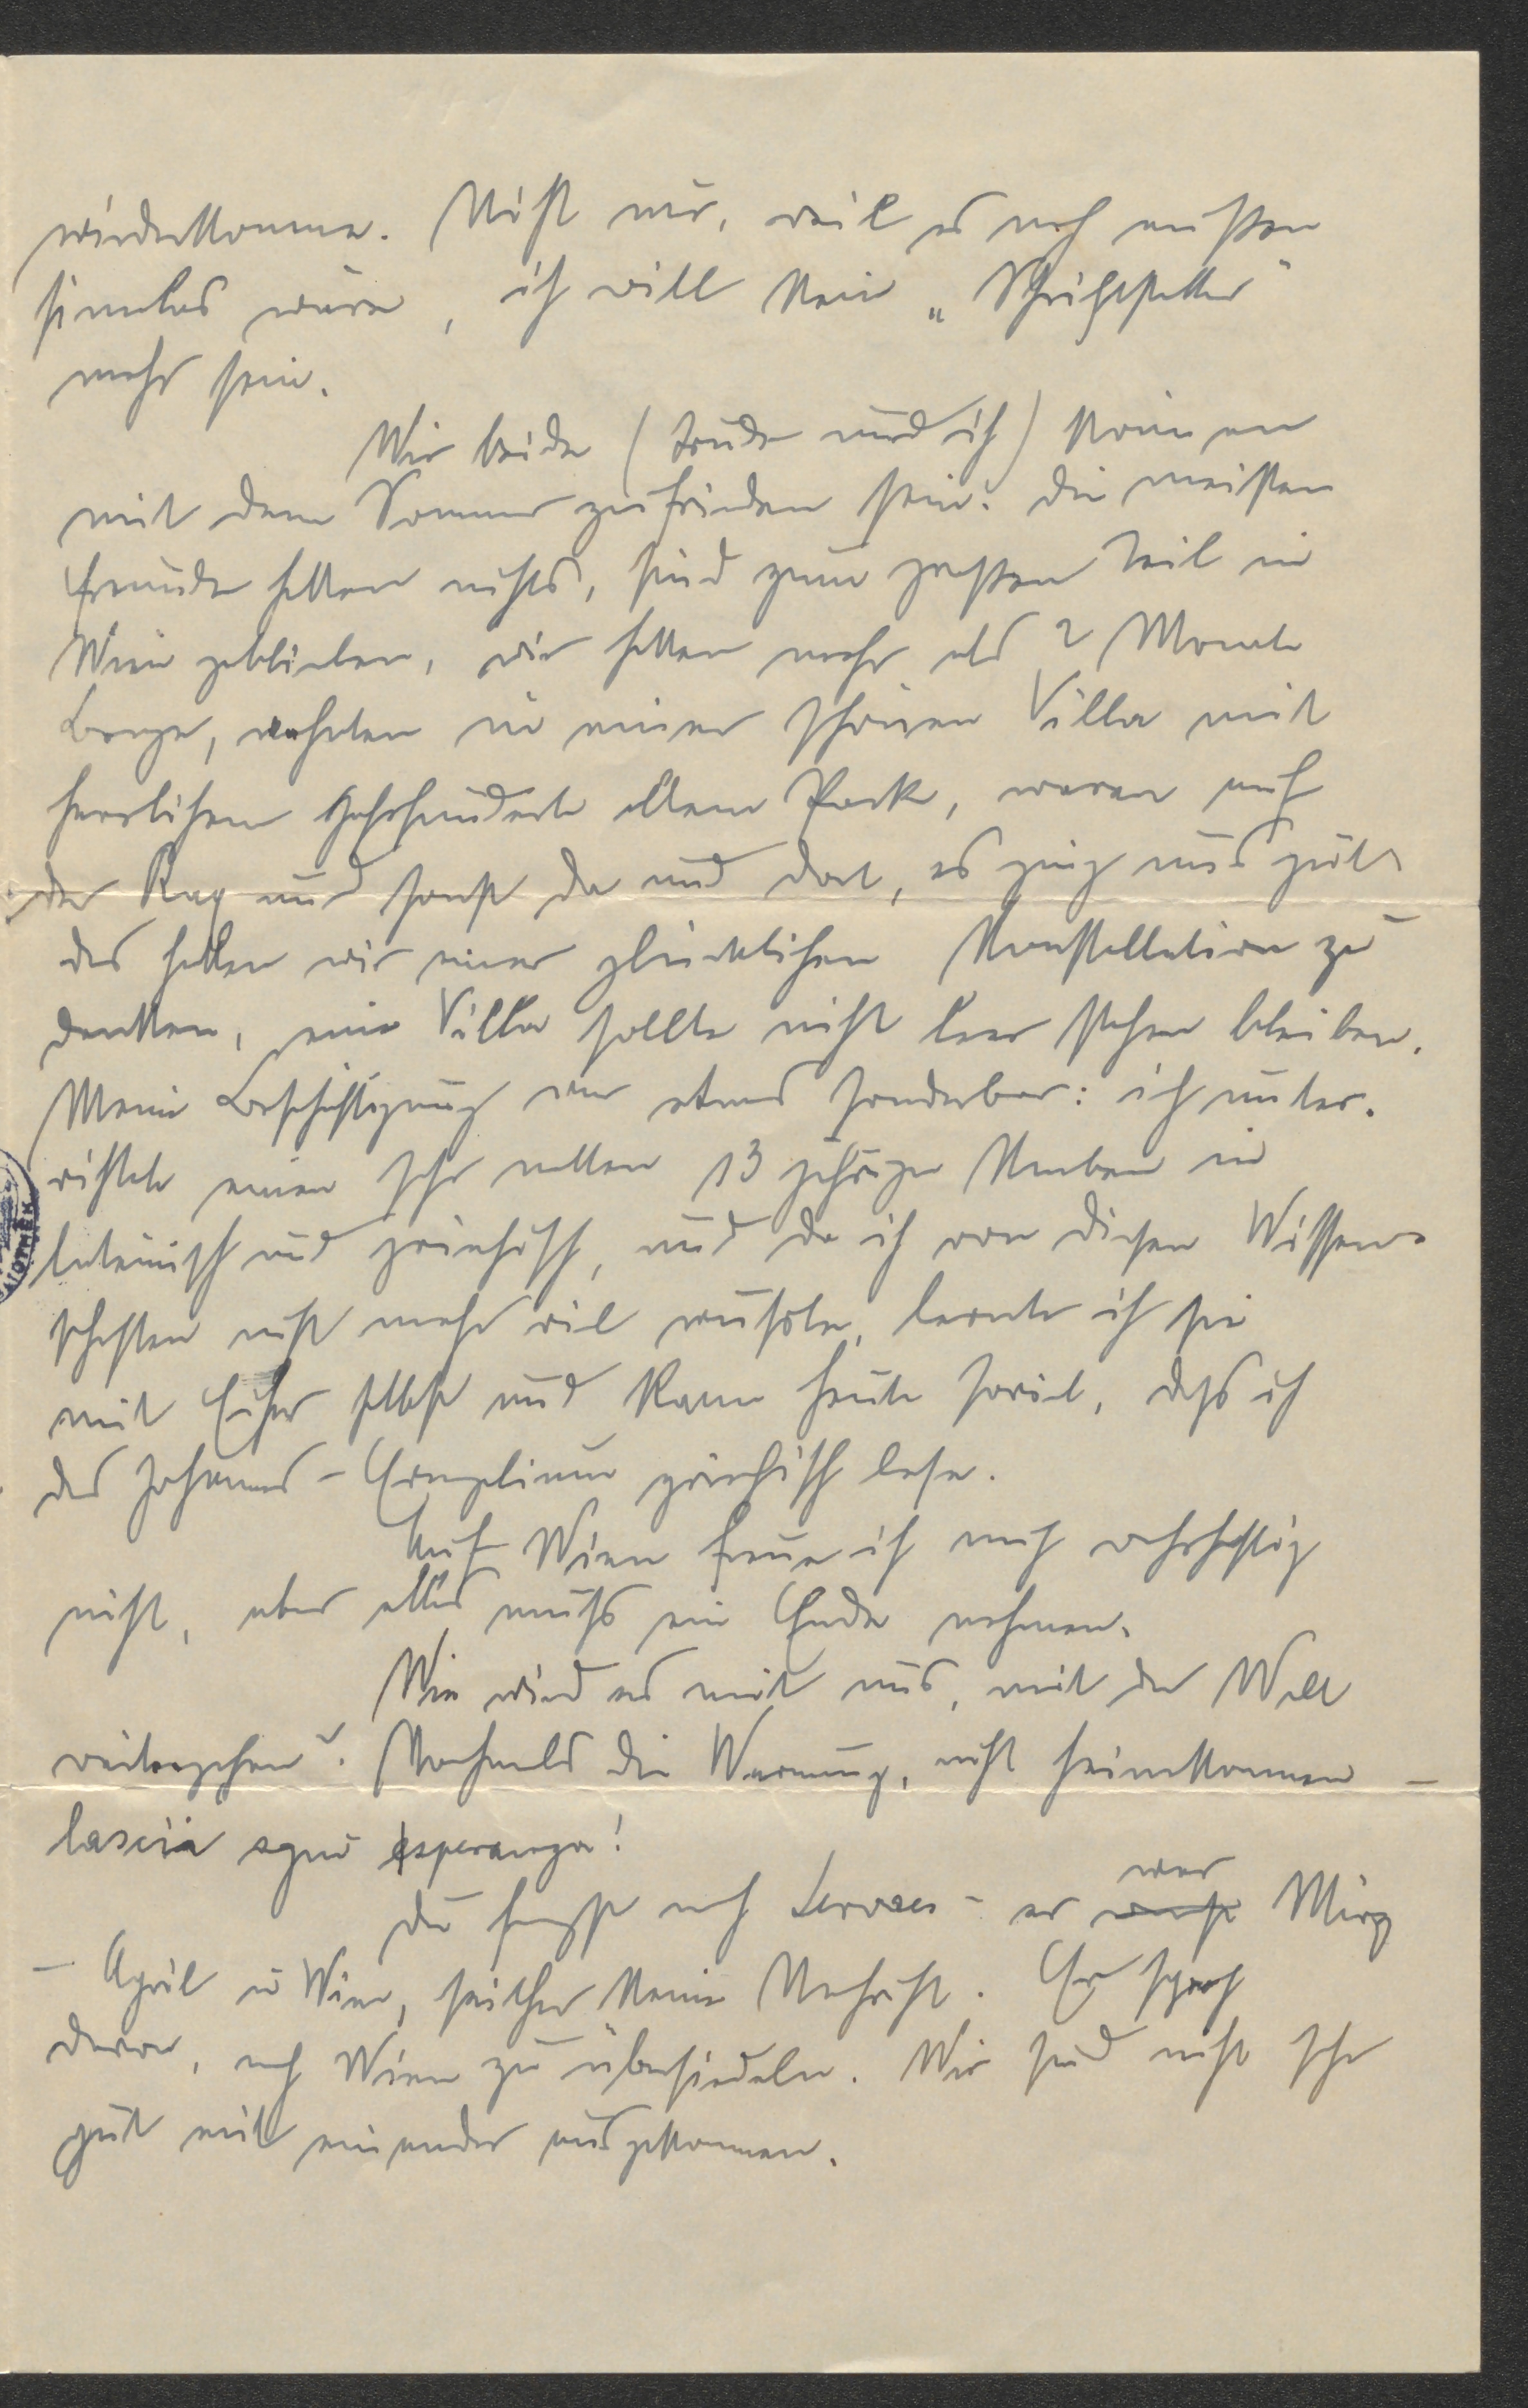 wiederkomme. Nicht nur, weil es nach aussen
sinnlos wäre, ich will kein „Schriftsteller“
mehr sein.
Wir beide (Trude und ich) können
mit dem Sommer zufrieden sein: die meisten
Freunde hatten nichts, sind zum grossen Teil in
Wien geblieben, wir hatten mehr als 2 Monate
Berge, wohnten in einer schönen Villa mit
herrlichem Jahrhunderte altem Park, waren auf
der Rax und sonst da und dort, es ging uns gut
das hatten wir einer glücklichen Konstellation zu
danken, eine Villa sollte nicht leer stehen bleiben.
Meine Beschäftigung war etwas sonderbar: ich unter-
richtete einen sehr netten 13 jährigen Knaben in
lateinisch und griechisch, und da ich von diesen Wissen-
schaften nicht mehr viel wusste, lernte ich sie
mit Eifer selbst und kann heute soviel, dass ich
das Johannes-Evangelium griechisch lese.
Auf Wien freue ich mich wahrhaftig
nicht, aber alles muss ein Ende nehmen.
Wie wird es mit uns, mit der Welt
weitergehen? Nochmals die Warnung, nicht heimkommen –
lascia ogni esperanza!
Du fragst nach Servaes – er war März
– April in Wien, seither keine Nachricht. Er sprach
davon, nach Wien zu übersiedeln. Wir sind nicht sehr
gut mit einander ausgekommen.